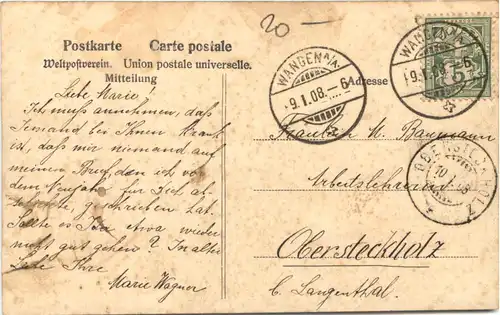 20 —
Postkarte Carte postale
Weltpostverein. Union postale universelle.
Mitteilung
Adresse
WANGEN A/A.
-9.I.08.-6
WANGEN A/A.
-9.I.08.-6
5
OBERSTECKHOLZ
10 I 08
Liebe Marie!
Ich muss annehmen, dass
Jemand bei Ihnen krank
ist, dass mir niemand auf
meinen Brief, den ich vor
dem Neujahr für Sich
geschrieben hat.
Sollte es Ihr etwa wieder
nicht gut gehen? In alter
Liebe Ihre
Marie Wagner
Fräulein M. Baumann
Arbeitslehrerin
Obersteckholz
b. Langenthal.